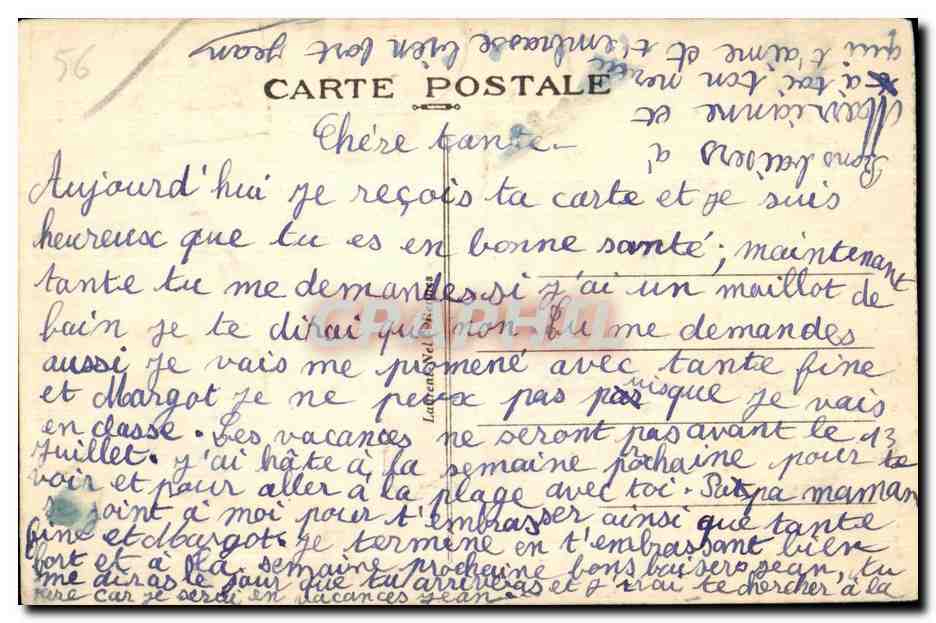 56
CARTE POSTALE
Chére tante.
Aujourd'hui je reçois ta carte et je suis
heureux que tu es en bonne santé; maintenant
tante tu me demandes si j'ai un maillot de
bain je te dirai que non tu me demandes
aussi je vais me promené avec tante fine
et Margot je ne peux pas puisque je vais
en classe. Les vacances ne seront pas avant le 13
juillet. j'ai hâte à la semaine prochaine pour te
voir et pour aller à la plage avec toi. Papa maman
se joint à moi pour t'embrasser ainsi que tante
fine et Margot. je termine en t'embrassant bien
fort et à la semaine prochaine bons baisers jean, tu
me diras le jour que tu arriveras et j'irai te chercher à la
gare car je serai en vacances jean.
Bons baisers à
Marianne et
à toi ton neveu
qui t'aime et t'embrasse bien fort jean
CPAPHIL
Laurent-Nel Rennes